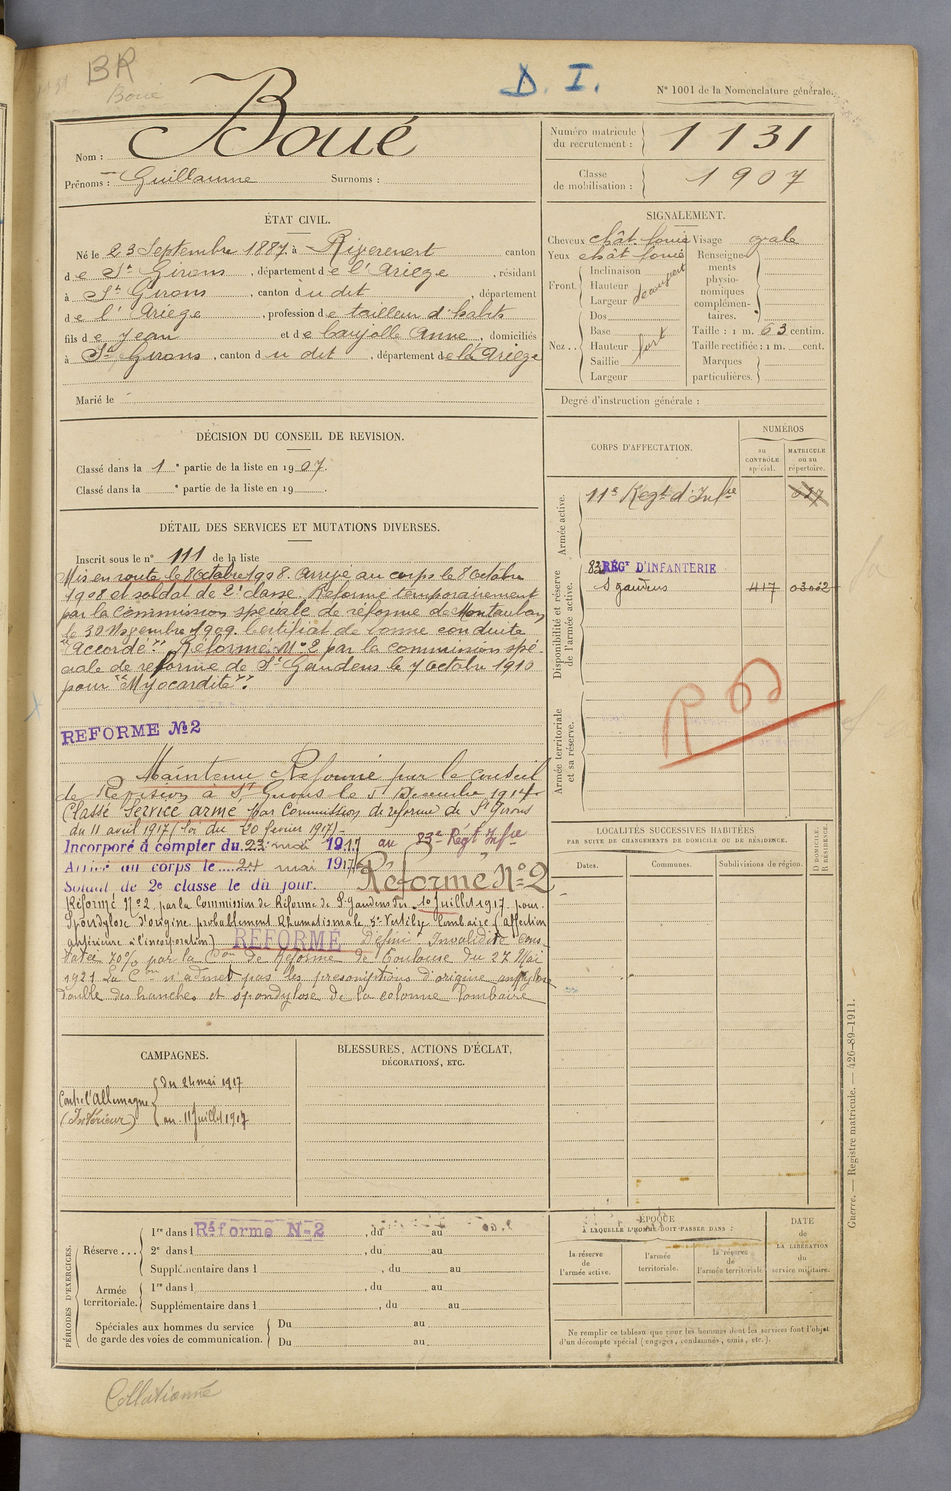 BR
Boué
D. I.
N° 1001 de la Nomenclature générale.
Nom : Boué
Prénoms : Guillaume Surnoms :
Numéro matricule du recrutement : 1131
Classe de mobilisation : 1907
ÉTAT CIVIL.
Né le 23 Septembre 1887, à Riverenert canton
de St Girons, département de l'Ariège, résidant
à St Girons, canton du dit, département
de l'Ariège, profession de tailleur d'habits
fils de Jean et de Caujolle Anne, domiciliés
à St Girons, canton du dit, département de l'Ariège
Marié le
SIGNALEMENT.
Cheveux chât. foncé Visage ovale
Yeux chât foncé
Front. Inclinaison
Hauteur
Largeur
Nez.. Dos
Base
Hauteur fort
Saillie
Largeur
Renseignements physionomiques complémentaires.
Taille : 1 m. 63 centim.
Taille rectifiée : 1 m. cent.
Marques particulières.
Degré d'instruction générale :
DÉCISION DU CONSEIL DE REVISION.
Classé dans la 1e partie de la liste en 1907.
Classé dans la e partie de la liste en 19 .
DÉTAIL DES SERVICES ET MUTATIONS DIVERSES.
Inscrit sous le n° 111 de la liste
Mis en route le 8 Octobre 1908. Arrivé au corps le 8 Octobre
1908 et soldat de 2e classe. Réformé temporairement
par la Commission spéciale de réforme de Montauban
le 30 Novembre 1909. Certificat de bonne conduite
"Accordé". Réformé N°2 par la commission spé-
ciale de réforme de St Gaudens le 7 Octobre 1910
pour "Myocardite".
REFORME No2
Maintenu Réformé par le conseil
de Révision à St Girons le 5 Décembre 1914
Classé Service armé par Commission de réforme de St Girons
du 11 avril 1917 (loi du 20 février 1917)
Incorporé à compter du 23 mai 1917 au 83e Regt Infie
Arrivé au corps le 24 mai 1917
Soldat de 2e classe le dit jour. Réformé No2
Réformé N°2 par la Commission de Réforme de St Gaudens du 10 juillet 1917 pour
Spondylose d'origine probablement Rhumatismale 5e Vertèbre lombaire (affection
antérieure à l'incorporation) REFORMÉ Définif Invalidité cons-
tatée 70% par la Con de Réforme de Toulouse du 27 Mai
1921 La Con n'admet pas les présomptions d'origine
double des hanches et spondylose de la colonne lombaire
CORPS D'AFFECTATION.
NUMÉROS
au CONTRÔLE spécial.
MATRICULE ou au répertoire.
Armée active.
11e Regt d'Infie
Disponibilité et réserve de l'armée active.
83 RÉGt D'INFANTERIE
St Gaudens 417 03062
Armée territoriale et sa réserve.
LOCALITÉS SUCCESSIVES HABITÉES
PAR SUITE DE CHANGEMENTS DE DOMICILE OU DE RÉSIDENCE.
Dates. Communes. Subdivisions de région. D DOMICILE. R RÉSIDENCE.
CAMPAGNES.
Contre l'Allemagne
(Intérieur)
du 24 mai 1917
au 11 Juillet 1917
BLESSURES, ACTIONS D'ÉCLAT,
DÉCORATIONS, ETC.
PÉRIODES D'EXERCICES.
Réserve...
1re dans l Réforme No2, du au
2e dans l , du au
Supplémentaire dans l , du au
Armée territoriale.
1re dans l , du au
Supplémentaire dans l , du au
Spéciales aux hommes du service de garde des voies de communication.
Du au
Du au
ÉPOQUE
À LAQUELLE L'HOMME DOIT PASSER DANS :
la réserve de l'armée active.
l'armée territoriale.
la réserve de l'armée territoriale.
DATE de LA LIBÉRATION du service militaire.
Ne remplir ce tableau que pour les hommes dont les services font l'objet
d'un décompte spécial (engagés, condamnés, omis, etc.).
Guerre. — Registre matricule. — 426-89-1911.
Collationné